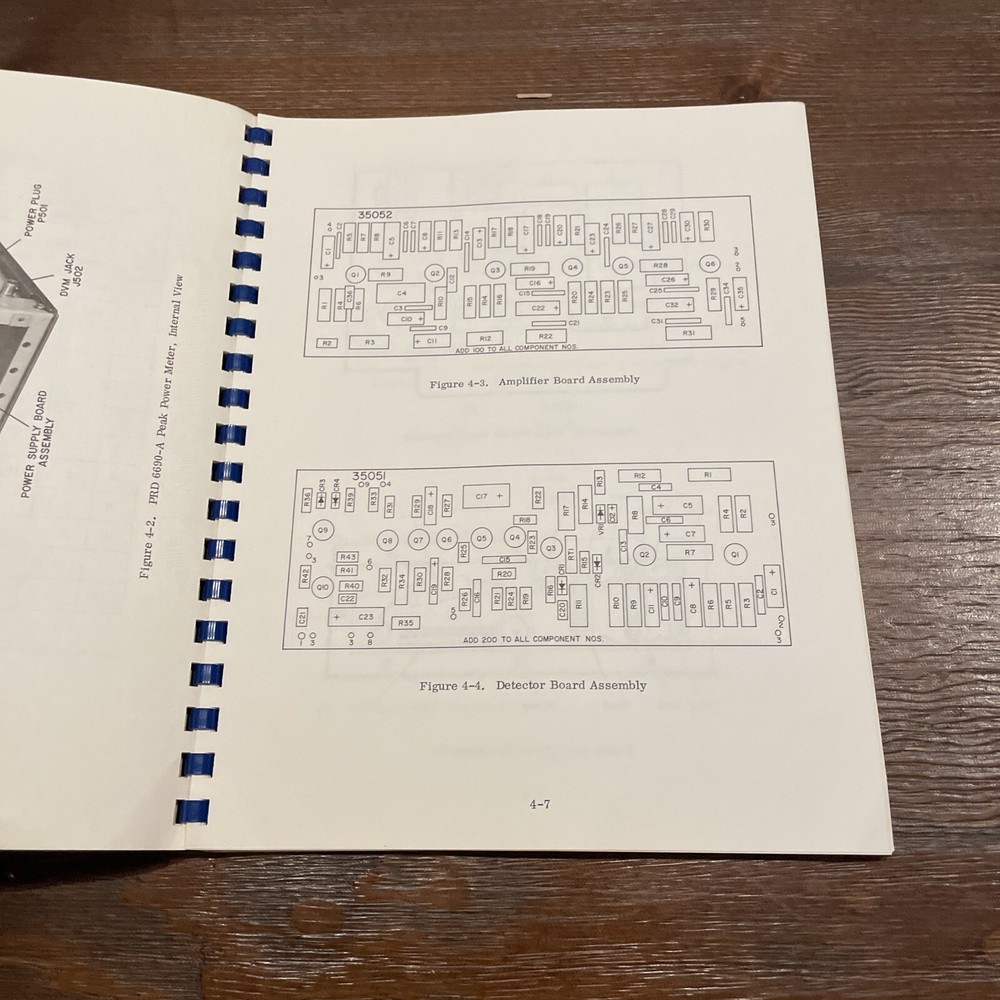 POWER PLUG
P501
DVM JACK
J502
POWER SUPPLY BOARD
ASSEMBLY
Figure 4-2. PRD 6690-A Peak Power Meter, Internal View
35052
C1 C2 R5 R7 R8 C5 C6 C7 C8 R11 R13 C14 C13 R17 R18 C17 C18 C19 C20 R21 C23 C24 R26 R27 C27 C28 C29 C30 R30
Q1 R9 Q2 C12 Q3 R19 Q4 Q5 R28 Q6
R1 R4 C36 R6 C4 R10 R15 R14 R16 C16 C15 C22 R20 R24 R23 R25 C26 C25 C32 R29 C34 C35
C3 C10 C9 C21 C31
R2 R3 C11 R12 R22 R31
ADD 100 TO ALL COMPONENT NOS.
Figure 4-3. Amplifier Board Assembly
35051
R36 CR3 CR4 R39 9 R33 4 R31 R29 C18 R27 C17 R22 R17 R14 R13 R12 C4 R1
Q9 Q8 Q7 Q6 R25 Q5 R18 Q4 R23 Q3 R8 C5 C6 C7 R4 R2
R43 R41 R42 Q10 R40 C22 R32 R34 R30 C19 R28 C15 R20 RT1 CR1 R15 CR2 C13 Q2 R7 Q1
C21 C23 R35 R26 C16 R21 R24 R19 R16 C20 R11 R10 R9 C11 C10 C9 C8 R6 R5 R3 C2 C1
1 3 3 8
ADD 200 TO ALL COMPONENT NOS.
Figure 4-4. Detector Board Assembly
4-7